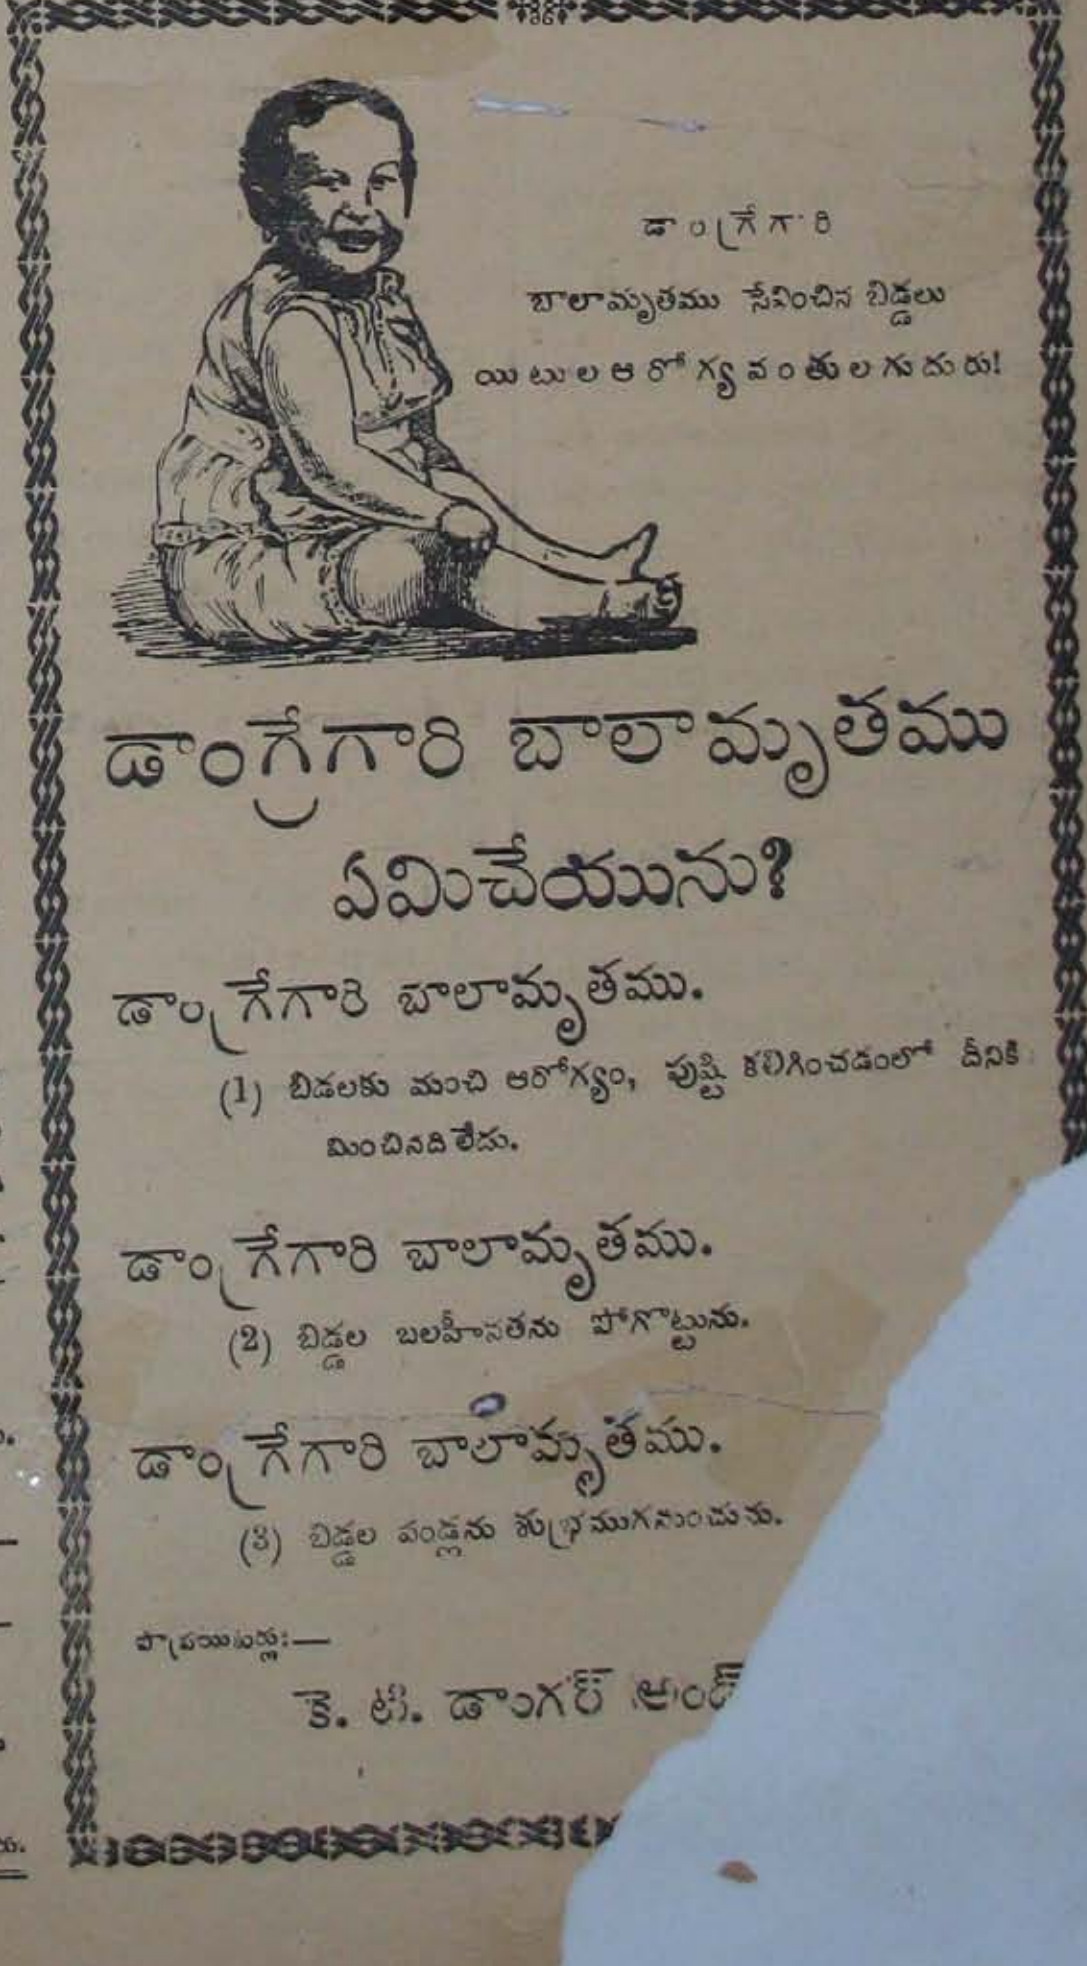 డాంగ్రేగారి
బాలామృతము సేవించిన బిడ్డలు
యిటుల ఆరోగ్యవంతులగుదురు!
డాంగ్రేగారి బాలామృతము
ఏమిచేయును?
డాంగ్రేగారి బాలామృతము.
(1) బిడలకు మంచి ఆరోగ్యం, పుష్టి కలిగించడంలో దీనికి
మించినదిలేదు.
డాంగ్రేగారి బాలామృతము.
(2) బిడ్డల బలహీనతను పోగొట్టును.
డాంగ్రేగారి బాలామృతము.
(3) బిడ్డల పండ్లను శుభ్రముగనుంచును.
ప్రొప్రయిటర్లు:—
కె. టి. డాంగర్ అండ్